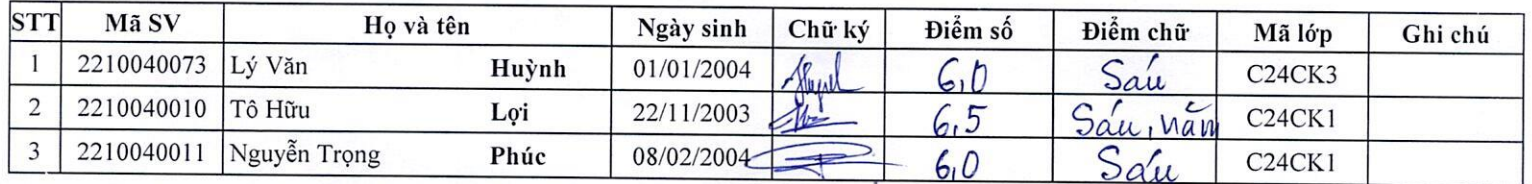 STT Mã SV Họ và tên Ngày sinh Chữ ký Điểm số Điểm chữ Mã lớp Ghi chú
1 2210040073 Lý Văn Huỳnh 01/01/2004 6,0 Sáu C24CK3
2 2210040010 Tô Hữu Lợi 22/11/2003 6,5 Sáu, năm C24CK1
3 2210040011 Nguyễn Trọng Phúc 08/02/2004 6,0 Sáu C24CK1